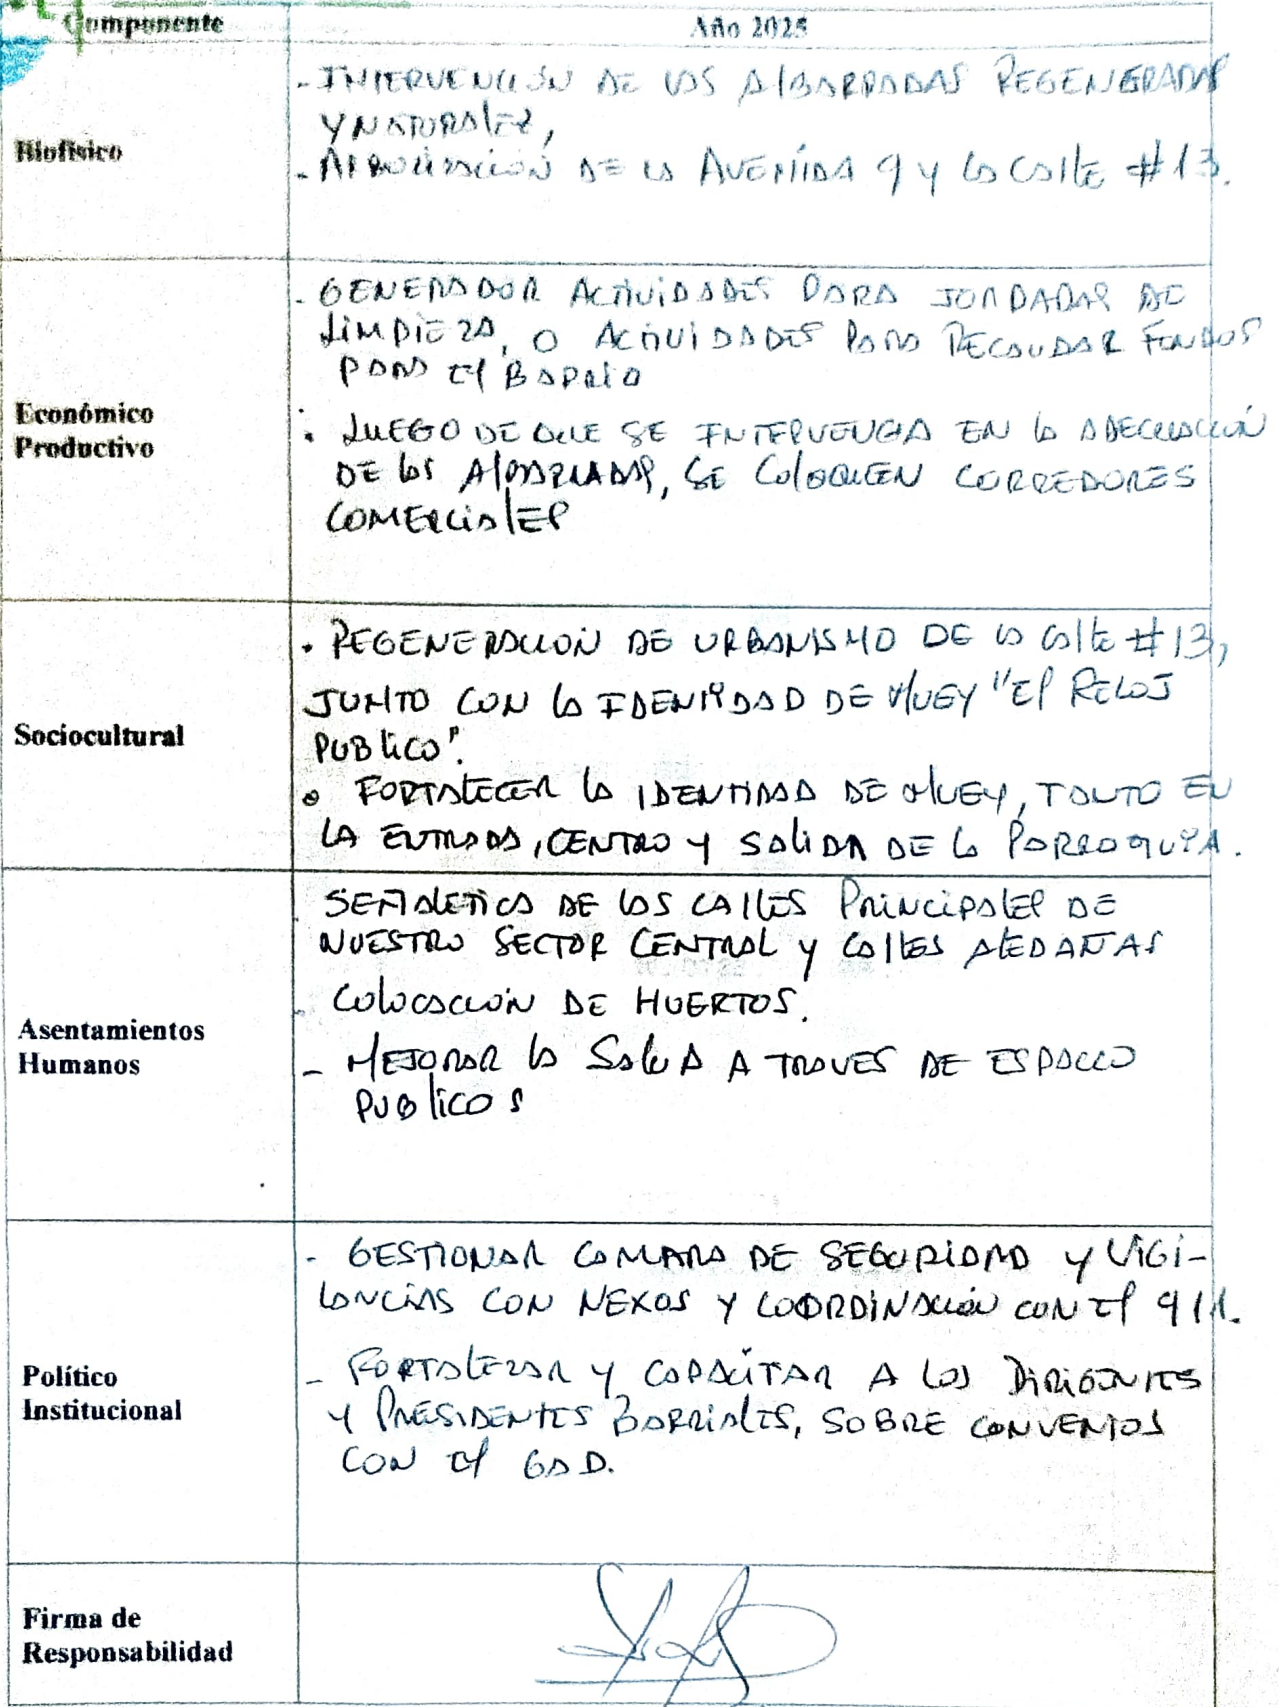 Componente
Año 2025
Biofísico
- INTERVENCIÓN DE LAS AlBARRADAS REGENERADAS
Y NATURALES,
- ARBORIZACIÓN DE LA AVENIDA 9 Y LA CALLE #13.
Económico
Productivo
- GENERADOR ACTIVIDADES PARA JORDADAS DE
LIMPIEZA, O ACTIVIDADES PARA RECAUDAR FONDOS
PARA El BARRIO
. LUEGO DE QUE SE INTERVENGA EN LA ADECUACIÓN
DE LAS AlBARRADAS, SE COLOQUEN CORREDORES
COMERCIALES
Sociocultural
. REGENERACIÓN DE URBANISMO DE LA CALLE #13,
JUNTO CON LA IDENTIDAD DE MUEY "El RELOJ
PUBLICO".
• FORTALECER LA IDENTIDAD DE MUEY, TANTO EN
LA ENTRADA, CENTRO Y SALIDA DE LA PARROQUIA.
Asentamientos
Humanos
- SEÑALETICA DE LAS CALLES PRINCIPALES DE
NUESTRO SECTOR CENTRAL Y CALLES ALEDAÑAS
- COLOCACIÓN DE HUERTOS.
- MEJORAR LA SALUD A TRAVES DE ESPACIO
PUBLICOS
Político
Institucional
- GESTIONAR CAMARA DE SEGURIDAD Y VIGI-
LANCIAS CON NEXOS Y COORDINACIÓN CON El 911.
- FORTALEZAR Y CAPACITAR A LOS DIRIGENTES
Y PRESIDENTES BARRIALES, SOBRE CONVENIOS
CON El GAD.
Firma de
Responsabilidad